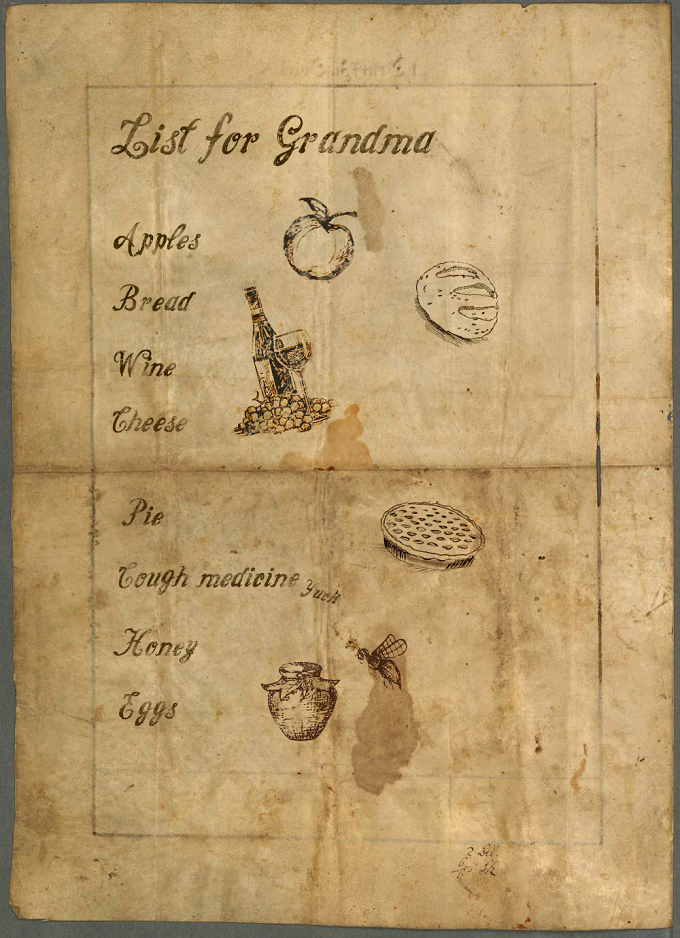 List for Grandma
Apples
Bread
Wine
Cheese
Pie
Cough medicine Yuck
Honey
Eggs